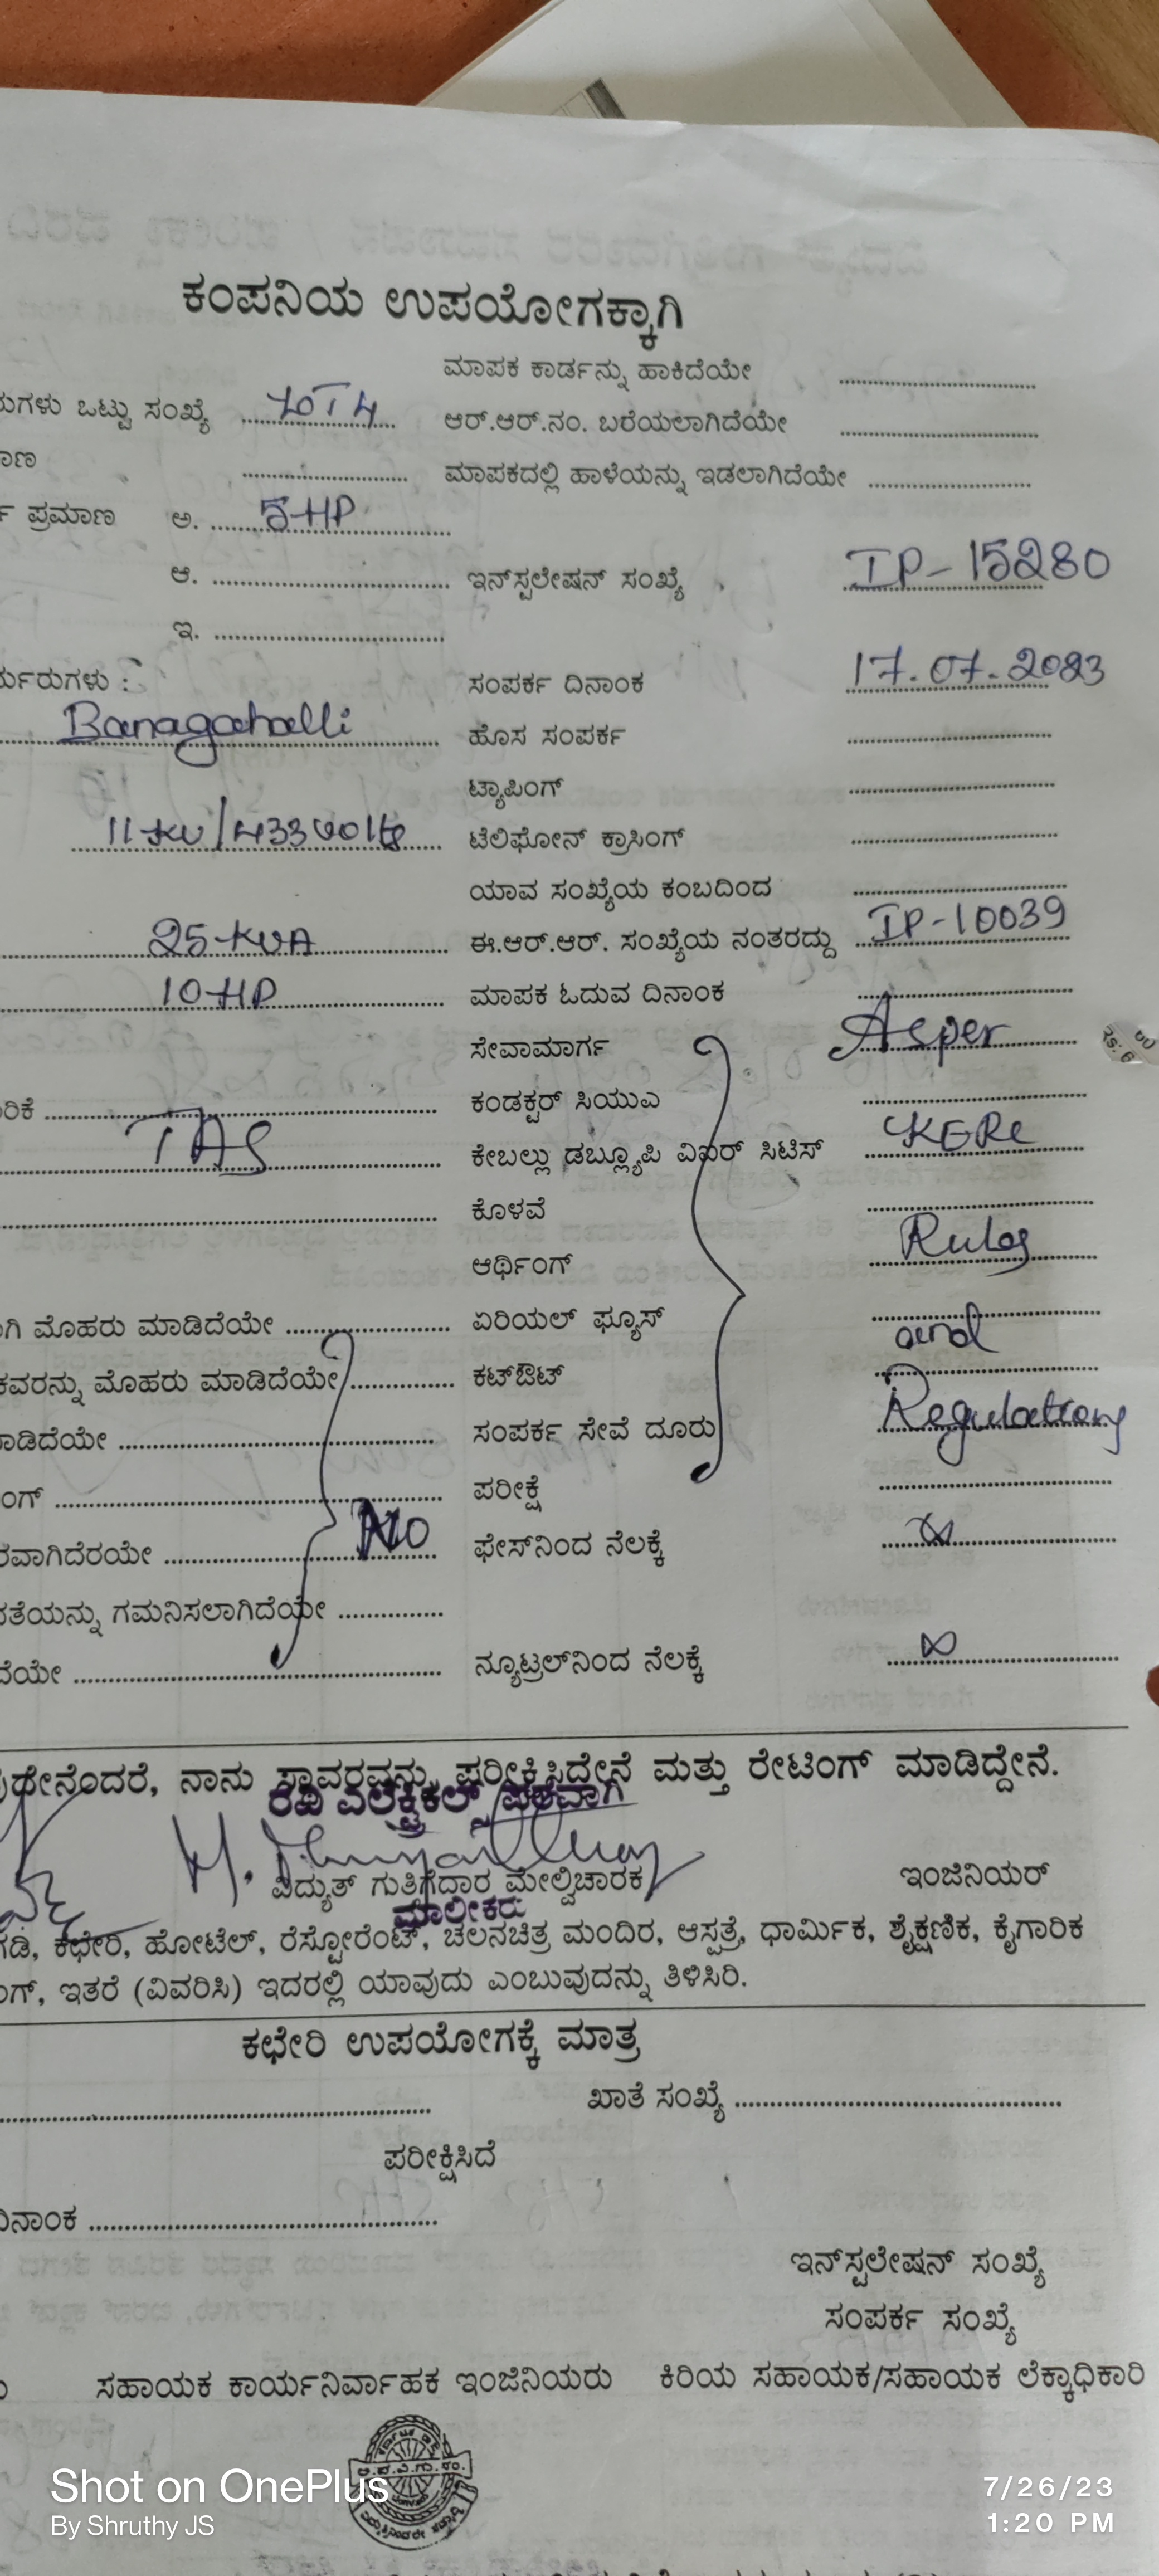 ಕಂಪನಿಯ ಉಪಯೋಗಕ್ಕಾಗಿ
ಮಾಪಕ ಕಾರ್ಡನ್ನು ಹಾಕಿದೆಯೇ ....................
ರುಗಳು ಒಟ್ಟು ಸಂಖ್ಯೆ ............ ಆರ್.ಆರ್.ನಂ. ಬರೆಯಲಾಗಿದೆಯೇ ....................
ಾಣ .................... ಮಾಪಕದಲ್ಲಿ ಹಾಳೆಯನ್ನು ಇಡಲಾಗಿದೆಯೇ ....................
ಪ್ರಮಾಣ ಅ. 5 HP
ಆ. .................... ಇನ್‌ಸ್ಟಲೇಷನ್ ಸಂಖ್ಯೆ IP-15280
ಇ. ....................
ರ್ಯರುಗಳು : ಸಂಪರ್ಕ ದಿನಾಂಕ 17.07.2023
Banagahalli ಹೊಸ ಸಂಪರ್ಕ ....................
ಟ್ಯಾಪಿಂಗ್ ....................
11 KV/433 Volts ಟೆಲಿಫೋನ್ ಕ್ರಾಸಿಂಗ್ ....................
ಯಾವ ಸಂಖ್ಯೆಯ ಕಂಬದಿಂದ ....................
25 KVA ಈ.ಆರ್.ಆರ್. ಸಂಖ್ಯೆಯ ನಂತರದ್ದು IP-10039
10 HP ಮಾಪಕ ಓದುವ ದಿನಾಂಕ ....................
ಸೇವಾಮಾರ್ಗ Asper
ರಿಕೆ .................... ಕಂಡಕ್ಟರ್ ಸಿಯುಎ ....................
TAS ಕೇಬಲ್ಲು ಡಬ್ಲ್ಯೂಪಿ ವಿಐರ್ ಸಿಟಿಸ್ KERC
ಕೊಳವೆ ....................
ಆರ್ಥಿಂಗ್ Rules
ಗಿ ಮೊಹರು ಮಾಡಿದೆಯೇ .................... ಏರಿಯಲ್ ಫ್ಯೂಸ್ and
ಕವರನ್ನು ಮೊಹರು ಮಾಡಿದೆಯೇ .................... ಕಟ್‌ಔಟ್ ....................
ಾಡಿದೆಯೇ .................... ಸಂಪರ್ಕ ಸೇವೆ ದೂರು Regulations
ಂಗ್ .................... ಪರೀಕ್ಷೆ ....................
ರವಾಗಿದೆರಯೇ .................... No ಫೇಸ್‌ನಿಂದ ನೆಲಕ್ಕೆ ∞
ತೆಯನ್ನು ಗಮನಿಸಲಾಗಿದೆಯೇ ....................
ದೆಯೇ .................... ನ್ಯೂಟ್ರಲ್‌ನಿಂದ ನೆಲಕ್ಕೆ ∞
ನೆಂದರೆ, ನಾನು ಸ್ಥಾವರವನ್ನು ಪರೀಕ್ಷಿಸಿದ್ದೇನೆ ಮತ್ತು ರೇಟಿಂಗ್ ಮಾಡಿದ್ದೇನೆ.
ಎಲೆಕ್ಟ್ರಿಕಲ್ಸ್ ಪರವಾಗಿ
ವಿದ್ಯುತ್ ಗುತ್ತಿಗೆದಾರ ಮೇಲ್ವಿಚಾರಕ ಇಂಜಿನಿಯರ್
ಮಾಲೀಕರು
ಗಡಿ, ಕಛೇರಿ, ಹೋಟೆಲ್, ರೆಸ್ಟೋರೆಂಟ್, ಚಲನಚಿತ್ರ ಮಂದಿರ, ಆಸ್ಪತ್ರೆ, ಧಾರ್ಮಿಕ, ಶೈಕ್ಷಣಿಕ, ಕೈಗಾರಿಕ
ಂಗ್, ಇತರೆ (ವಿವರಿಸಿ) ಇದರಲ್ಲಿ ಯಾವುದು ಎಂಬುವುದನ್ನು ತಿಳಿಸಿರಿ.
ಕಛೇರಿ ಉಪಯೋಗಕ್ಕೆ ಮಾತ್ರ
.................... ಖಾತೆ ಸಂಖ್ಯೆ ....................
ಪರೀಕ್ಷಿಸಿದೆ
ದಿನಾಂಕ ....................
ಇನ್‌ಸ್ಟಲೇಷನ್ ಸಂಖ್ಯೆ
ಸಂಪರ್ಕ ಸಂಖ್ಯೆ
ಸಹಾಯಕ ಕಾರ್ಯನಿರ್ವಾಹಕ ಇಂಜಿನಿಯರು ಕಿರಿಯ ಸಹಾಯಕ/ಸಹಾಯಕ ಲೆಕ್ಕಾಧಿಕಾರಿ
Shot on OnePlus
By Shruthy JS
7/26/23
1:20 PM